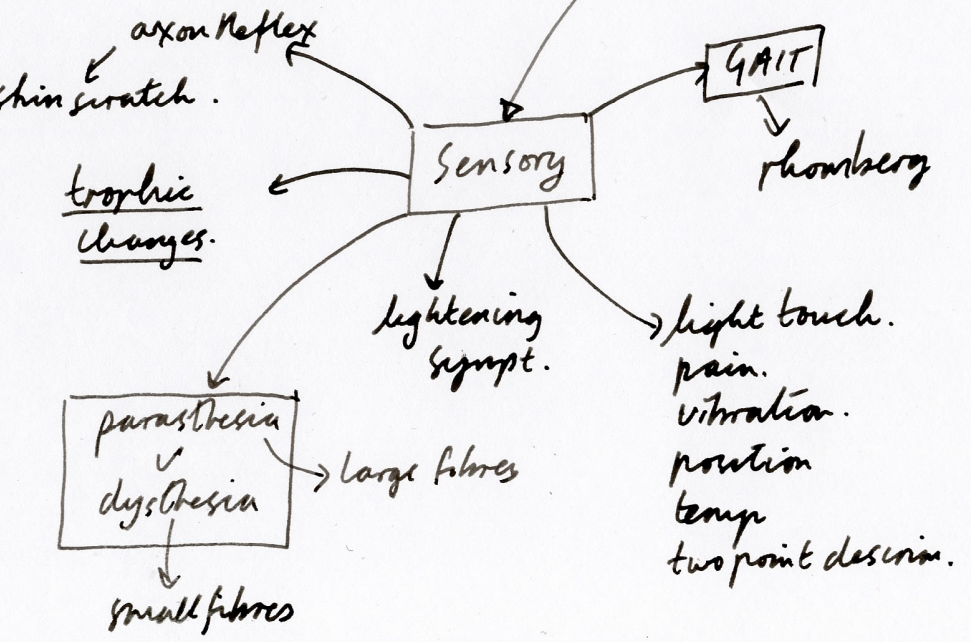 axon Reflex
skin scratch.
GAIT
rhomberg
Sensory
trophic
changes.
lightening
sympt.
light touch.
pain.
vibration.
position
temp
two point descrim.
parasthesia
dysthesia
large fibres
small fibres